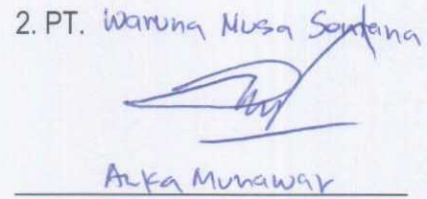 2. PT. Waruna Nusa Sentana
Azka Munawar